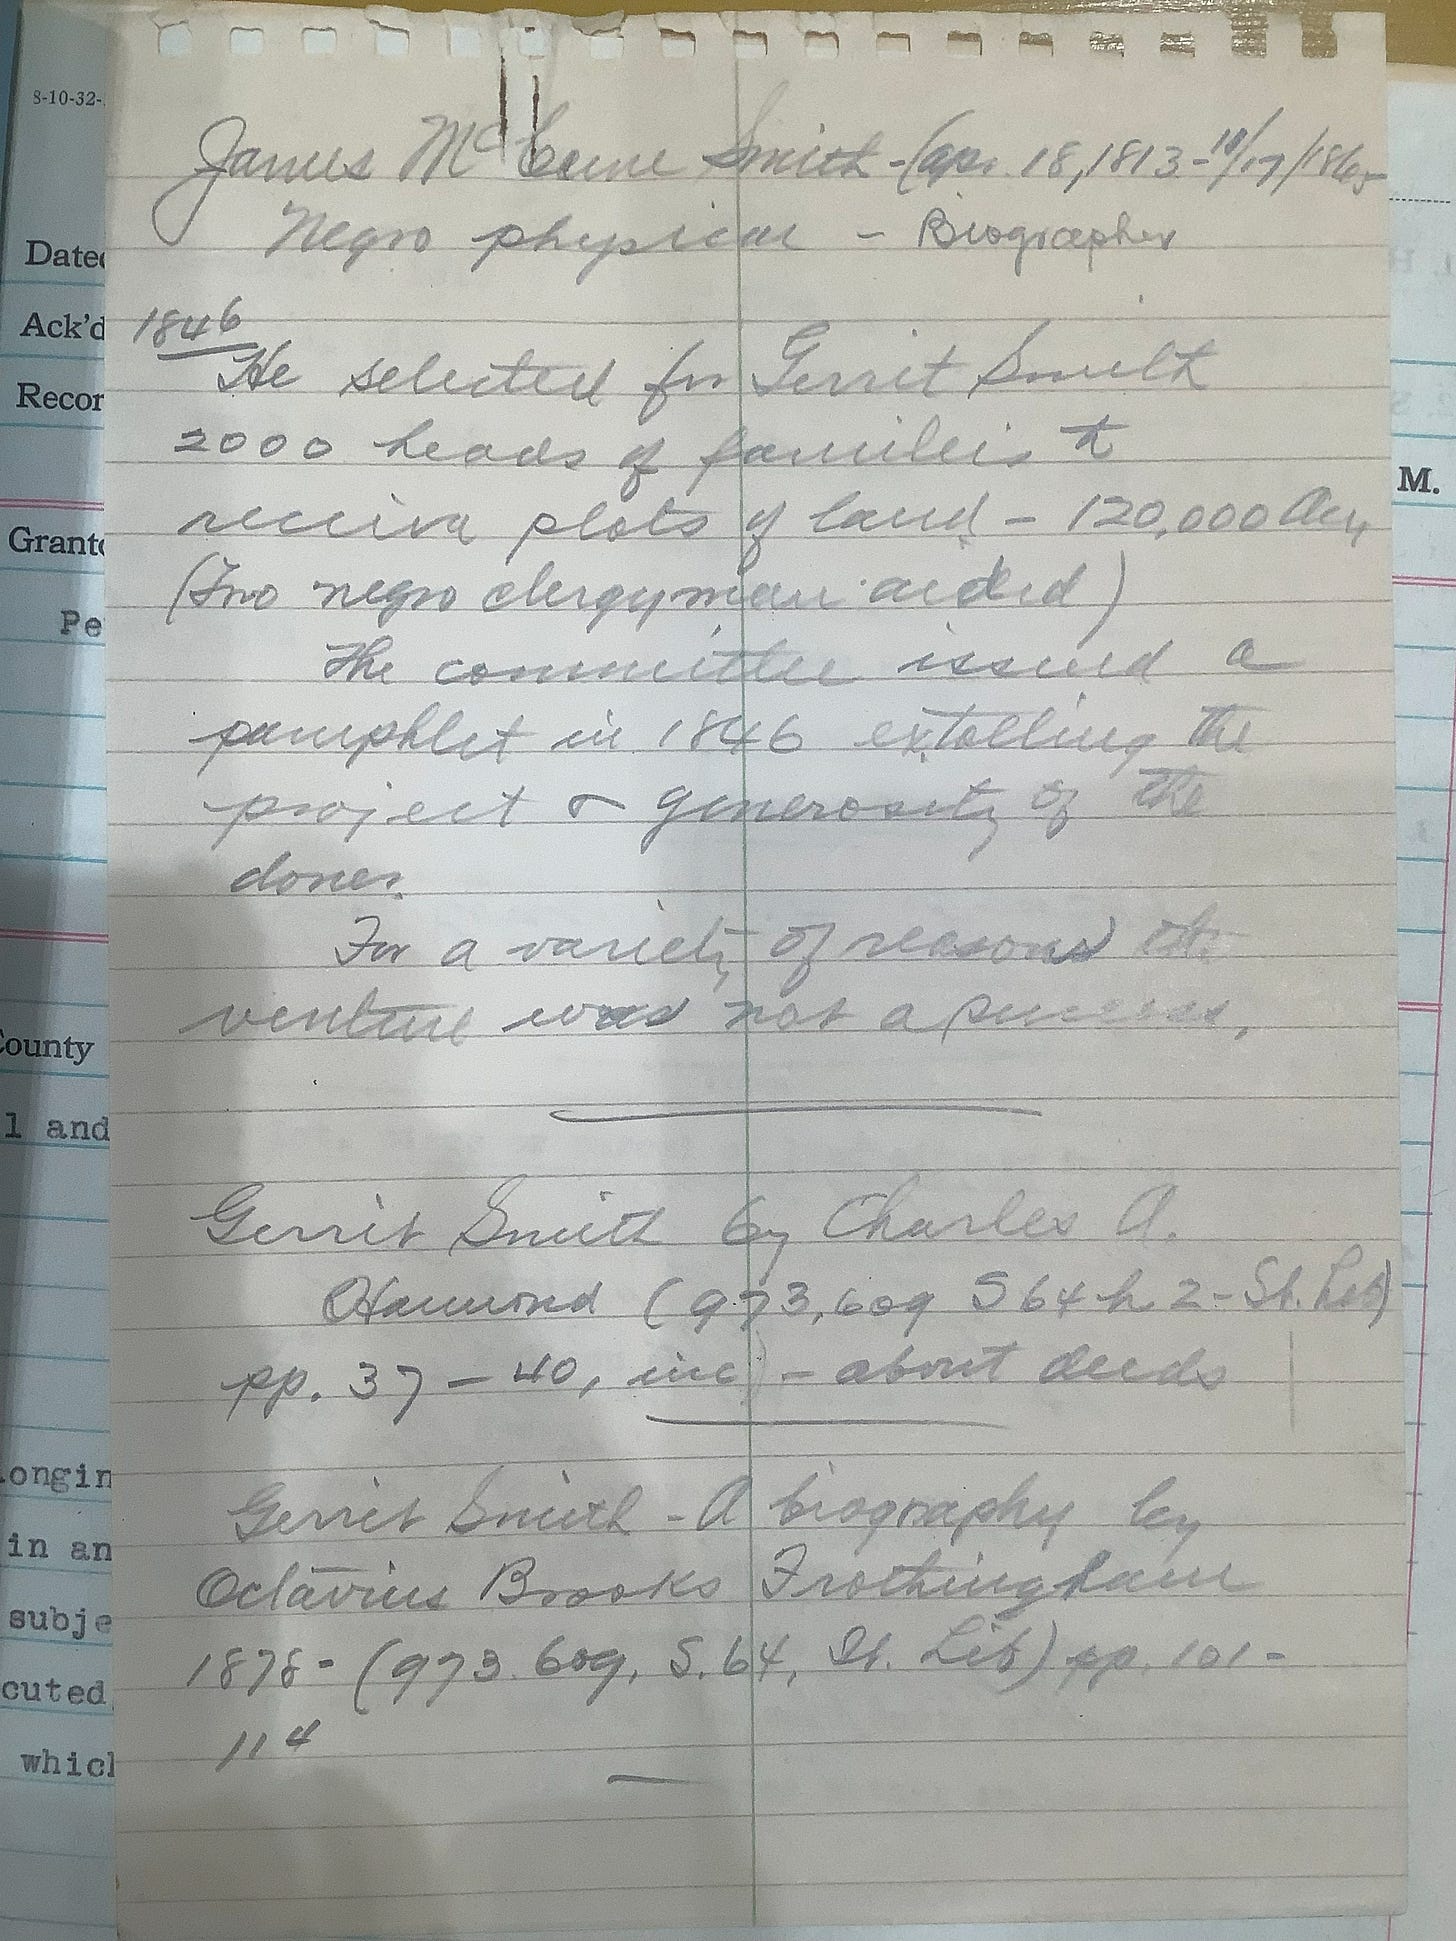 8-10-32-
James McCune Smith - (Apr. 18, 1813 - 10/17/1865
Negro physician - Biographer
1846
He selected for Gerrit Smith
2000 heads of families to
receive plots of land - 120,000 Acr
(Two negro clergyman aided)
The committee issued a
pamphlet in 1846 extolling the
project & generosity of the
doner.
For a variety of reasons the
venture was not a success.
Gerrit Smith by Charles A.
Hammond (973.609 S64h2 - St. Lib)
pp. 37-40, inc - about deeds
Gerrit Smith - A biography by
Octavius Brooks Frothingham
1878 - (973.609, S.64, St. Lib) pp. 101-
114
Dated
Ack'd
Recor
Grant
Pe
County
1 and
longin
in an
subje
cuted
which
M.